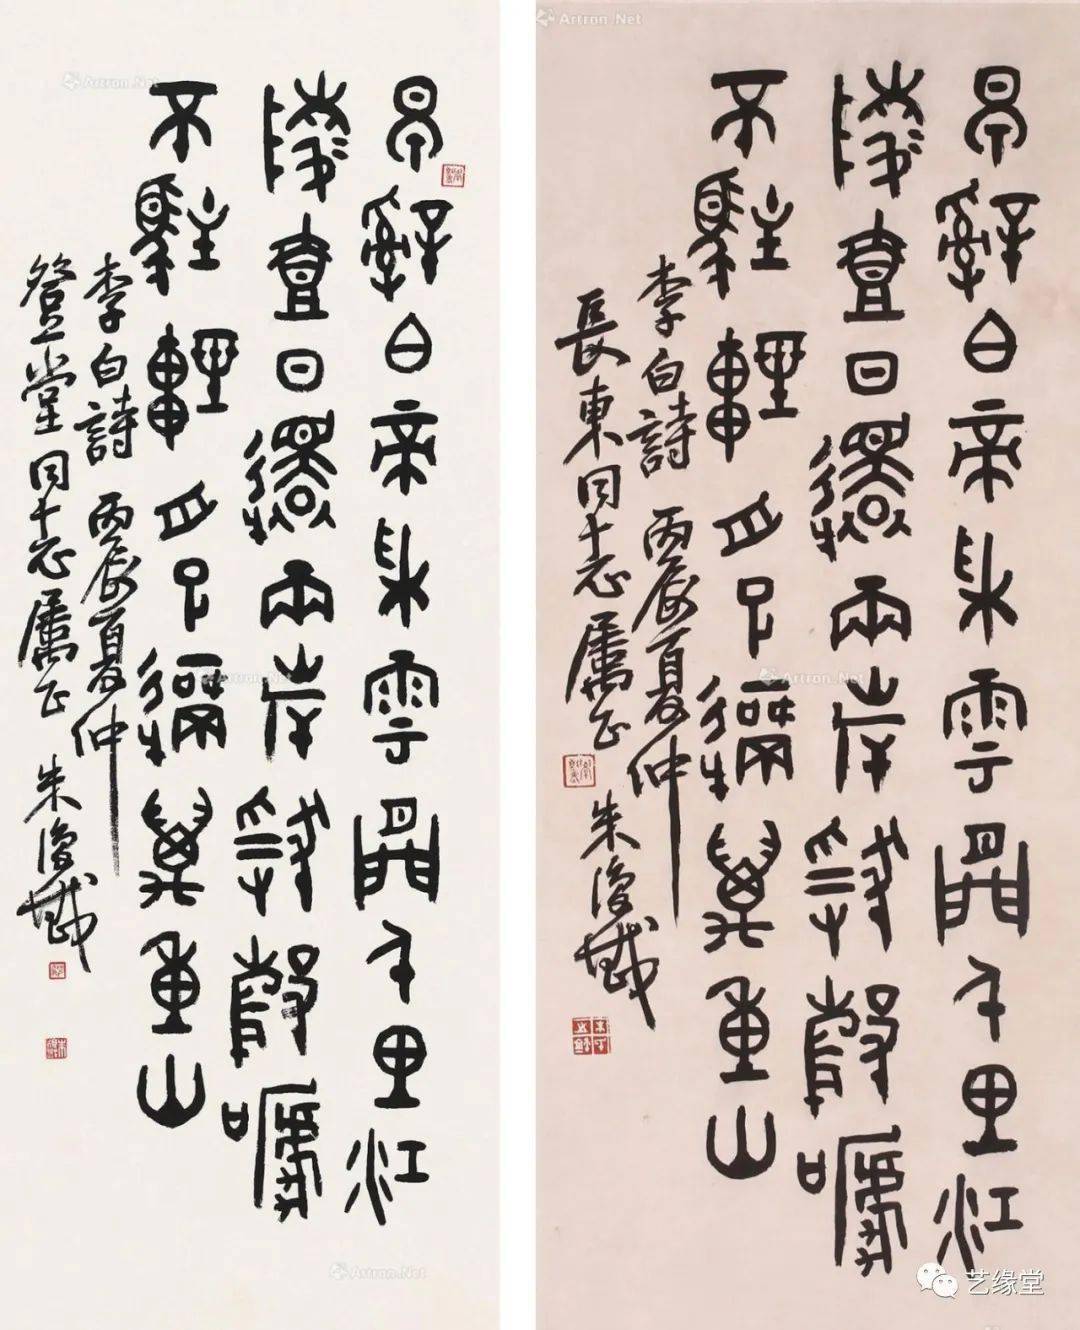 早辭白帝彩雲間千里江
陵壹日還兩岸猿聲嗁
不駐輕舟已過萬重山
李白詩 丙辰夏仲
登堂同志屬正 朱復戡
早辭白帝彩雲間千里江
陵壹日還兩岸猿聲嗁
不駐輕舟已過萬重山
李白詩 丙辰夏仲
長東同志屬正 朱復戡
Artron.Net
Artron.Net
Artron.Net
Artron.Net
Artron.Net
艺缘堂